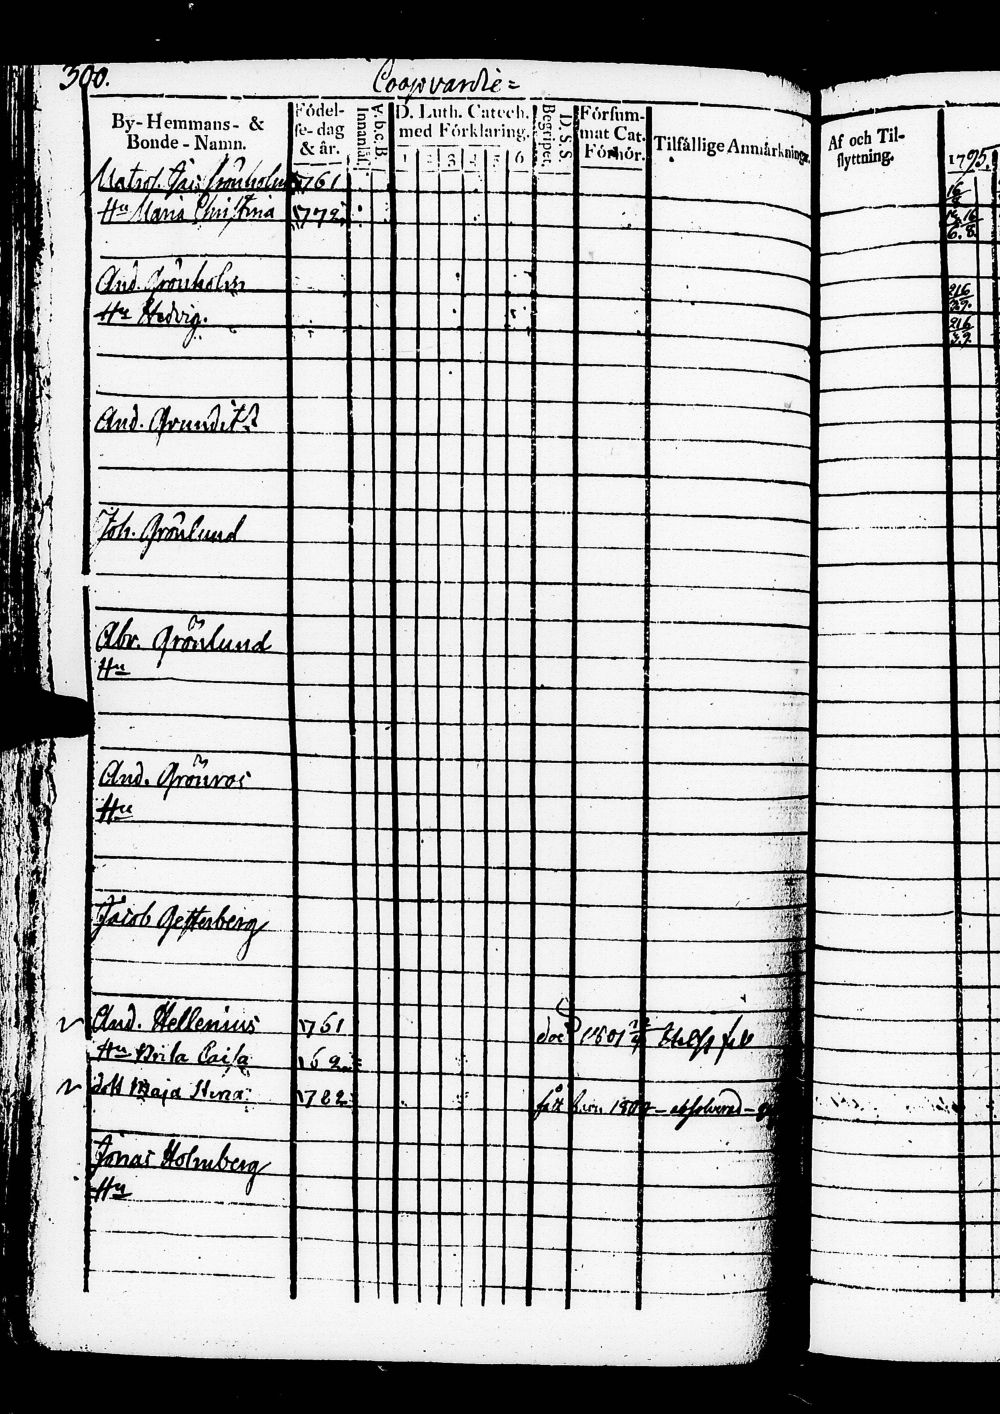 300.
Coopvardie=
By- Hemmans- & Bonde-Namn.
Födel-se-dag & år.
Innanläs.
A.b.c.B
D. Luth. Catech. med Förklaring.
1 2 3 4 5 6
Begriper.
D.S.S
Försum-mat Cat. Förhör.
Tilfällige Anmärkningar
Af och Til-flyttning.
1795.
Matros. Grönholm 1761
Hu Maria Christina 1772
And. Grönholm
Hu Hedvig.
And. Grundst
Joh. Grönlund
Abr. Grönlund
Hu
And. Grönros
Hu
Jacob Getterberg
And. Hellenius 1761 död 1801
Hu Brita Caisa
dott Maja Stina 1782 fått barn absolverad
Jonas Holmberg
Hu